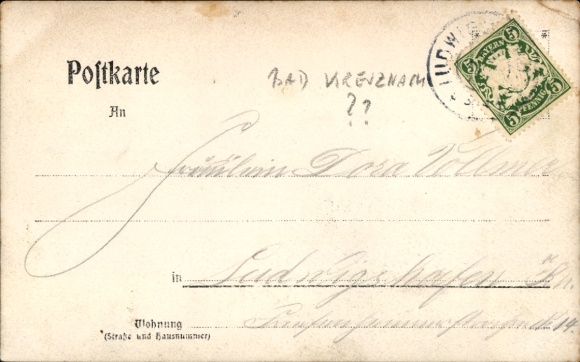 LUDWIG
BAYERN
5 5
5 5
PFENNIG
Postkarte
BAD KREUZNACH
??
An
Fräulein Dora Vollmer
in Ludwigshafen a. Rh.
Wohnung
(Straße und Hausnummer)
14